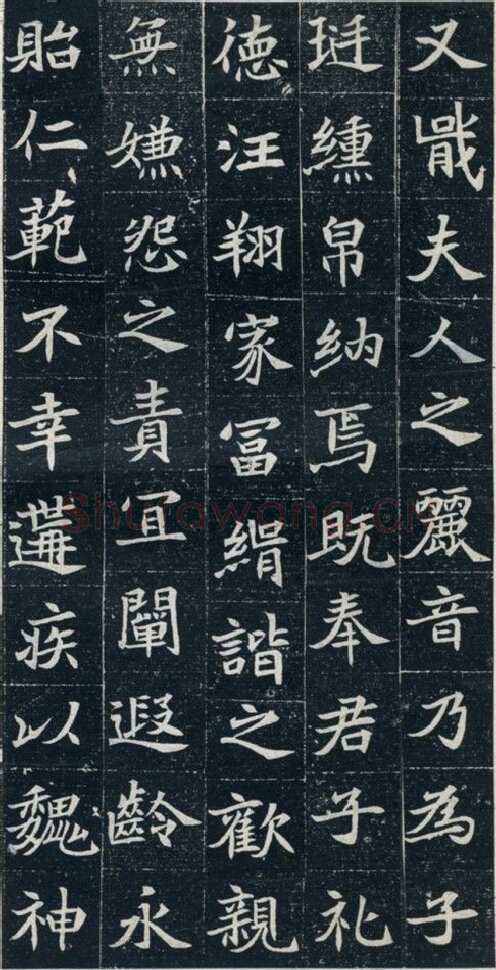 又戢夫人之麗音乃為子
珽纁帛納焉既奉君子礼
徳汪翔家冨緝諧之歡親
無嫌怨之責宜闡遐齡永
貽仁範不幸遘疾以魏神
Shufawang.cn